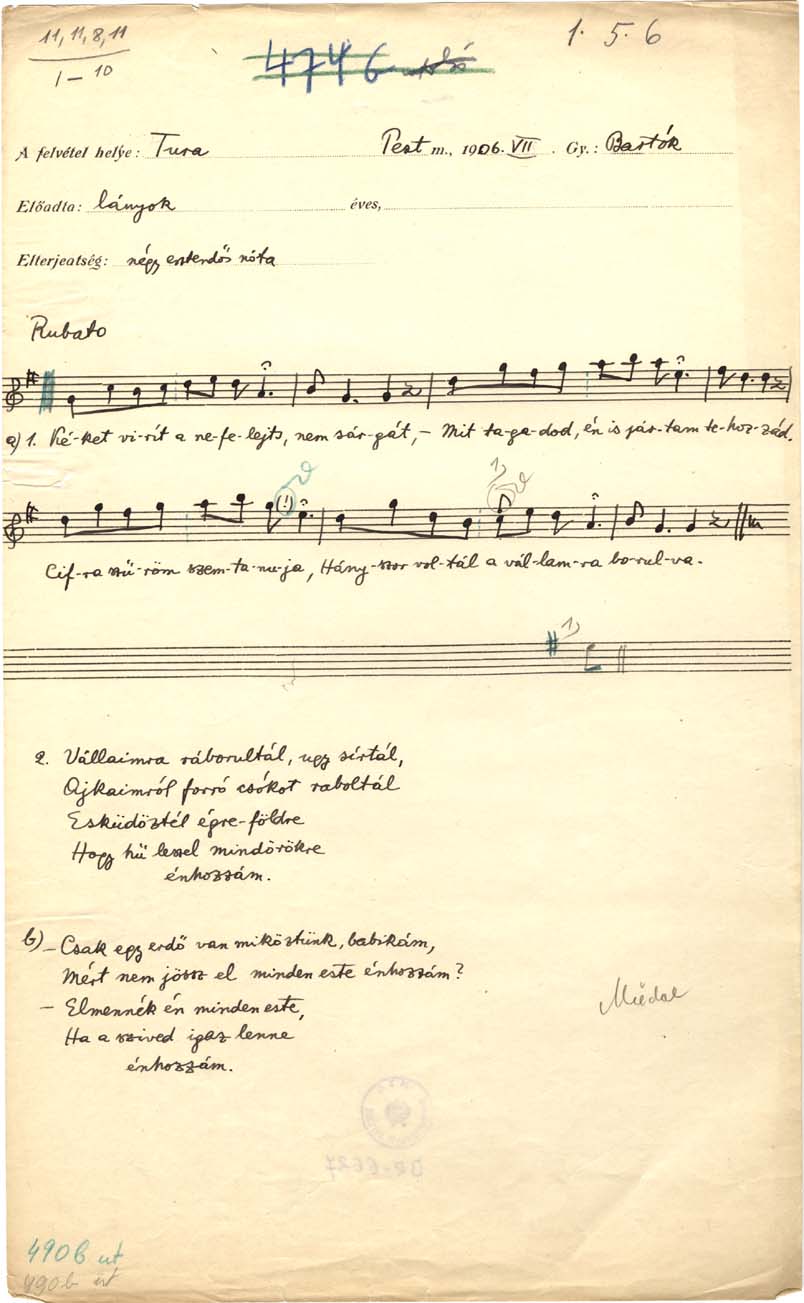 11, 11, 8, 11
1 – 10
1. 5. 6
4746 utolsó
A felvétel helye: Tura Pest m., 1906. VII. Gy.: Bartók
Előadta: lányok éves,
Elterjedtség: négy esztendős nóta
Rubato
a) 1. Ké-ket vi-rít a ne-fe-lejts, nem sár-gát, – Mit ta-ga-dod, én is jár-tam te-hoz-zád.
(!)
1)
Cif-ra szű-röm szem-ta-nu-ja, Hány-szor vol-tál a vál-lam-ra bo-rul-va.
1)
2. Vállaimra ráborultál, ugy sírtál,
Ajkaimról forró csókot raboltál
Esküdöztél égre-földre
Hogy hű leszel mindörökre
énhozzám.
b) – Csak egy erdő van miköztünk, babikám,
Mért nem jössz el minden este énhozzám?
– Elmennék én minden este,
Ha a szived igaz lenne
énhozzám.
Műdal
490b ut
490b ut